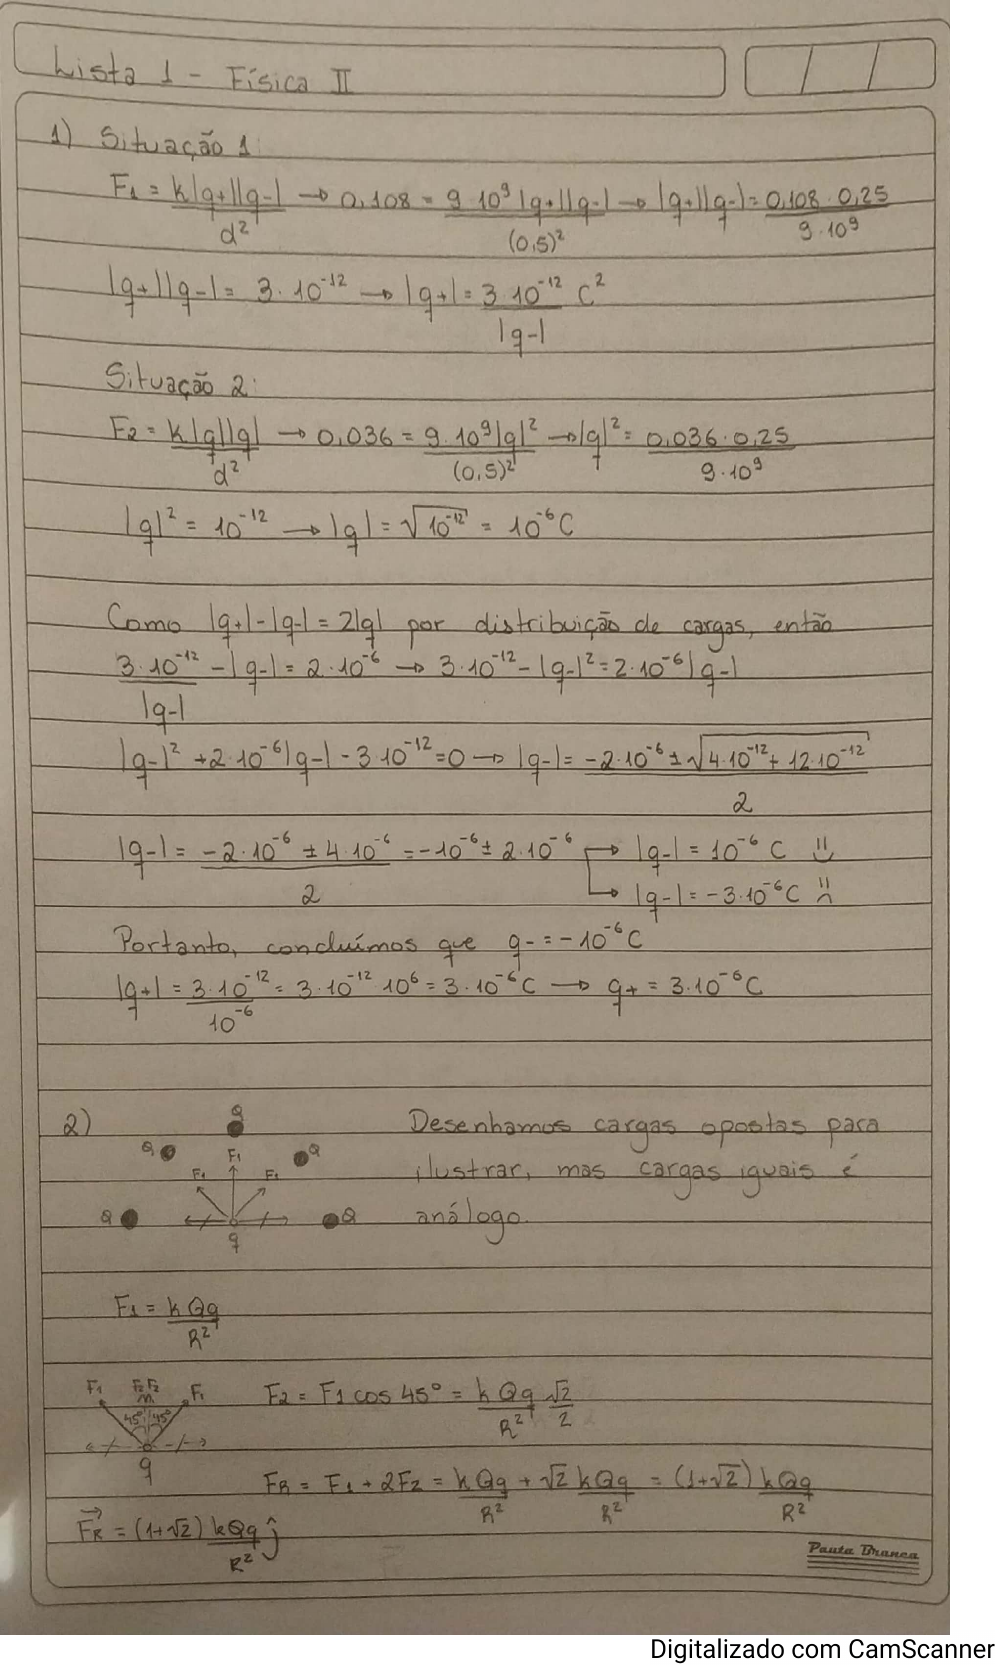 Lista 1 - Física II
1) Situação 1:
F₁ = k|q+||q-|/d² → 0,108 = 9·10⁹|q+||q-|/(0,5)² → |q+||q-| = 0,108·0,25/9·10⁹
|q+||q-| = 3·10⁻¹² → |q+| = 3·10⁻¹²/|q-| C²
Situação 2:
F₂ = k|q||q|/d² → 0,036 = 9·10⁹|q|²/(0,5)² → |q|² = 0,036·0,25/9·10⁹
|q|² = 10⁻¹² → |q| = √10⁻¹² = 10⁻⁶C
Como |q+|-|q-| = 2|q| por distribuição de cargas, então
3·10⁻¹²/|q-| - |q-| = 2·10⁻⁶ → 3·10⁻¹² - |q-|² = 2·10⁻⁶|q-|
|q-|² + 2·10⁻⁶|q-| - 3·10⁻¹² = 0 → |q-| = -2·10⁻⁶ ± √4·10⁻¹² + 12·10⁻¹²/2
|q-| = -2·10⁻⁶ ± 4·10⁻⁶/2 = -10⁻⁶ ± 2·10⁻⁶ → |q-| = 10⁻⁶ C
→ |q-| = -3·10⁻⁶C
Portanto, concluímos que q- = -10⁻⁶C
|q+| = 3·10⁻¹²/10⁻⁶ = 3·10⁻¹²·10⁶ = 3·10⁻⁶C → q+ = 3·10⁻⁶C
2)
Q
Q
Q
F₁
F₁
F₁
Q
Q
q
Desenhamos cargas opostas para
ilustrar, mas cargas iguais é
análogo.
F₁ = kQq/R²
F₁
F₂ F₂
F₁
45°
45°
q
F₂ = F₁ cos 45° = kQq/R² √2/2
FR = F₁ + 2F₂ = kQq/R² + √2 kQq/R² = (1+√2) kQq/R²
F⃗R = (1+√2) kQq/R² ĵ
Pauta Branca
Digitalizado com CamScanner